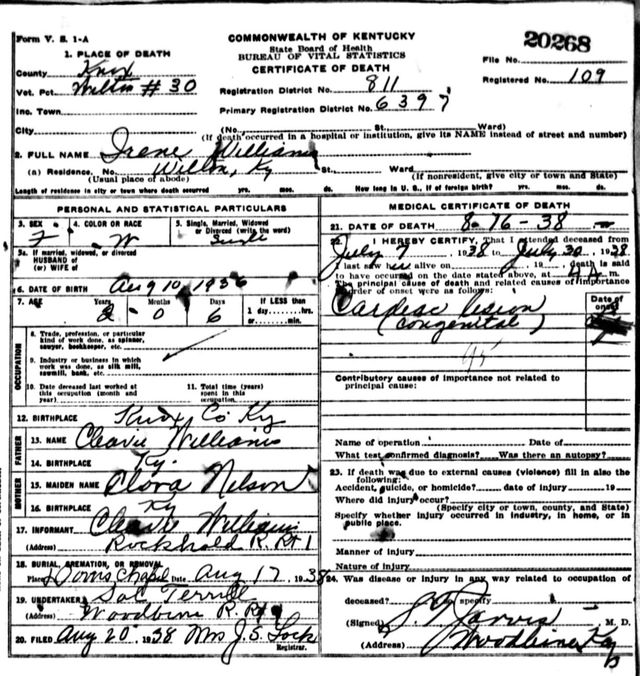 Form V. S. 1-A
COMMONWEALTH OF KENTUCKY
State Board of Health
BUREAU OF VITAL STATISTICS
CERTIFICATE OF DEATH
20268
File No.
Registered No. 109
1. PLACE OF DEATH
County Knox
Vot. Pct. Wilton # 30
Inc. Town
City
Registration District No. 811
Primary Registration District No. 6397
(No. St. Ward)
(If death occurred in a hospital or institution, give its NAME instead of street and number)
2. FULL NAME Irene Williams
(a) Residence. No. Wilton, Ky St. Ward
(Usual place of abode) (If nonresident, give city or town and State)
Length of residence in city or town where death occurred yrs. mos. ds. How long in U. S., if of foreign birth? yrs. mos. ds.
PERSONAL AND STATISTICAL PARTICULARS
3. SEX F
4. COLOR OR RACE W
5. Single, Married, Widowed or Divorced (write the word) Single
5a. If married, widowed or divorced
HUSBAND of
(or) WIFE of
6. DATE OF BIRTH Aug 10, 1936
7. AGE Years 2 Months 0 Days 6
If LESS than
1 day,....hrs.
or......min.
OCCUPATION
8. Trade, profession, or particular
kind of work done, as spinner,
sawyer, bookkeeper, etc.
9. Industry or business in which
work was done, as silk mill,
sawmill, bank, etc.
10. Date deceased last worked at
this occupation (month and
year)
11. Total time (years)
spent in this
occupation
12. BIRTHPLACE Knox Co Ky
FATHER
13. NAME Cleavie Williams
14. BIRTHPLACE Ky.
MOTHER
15. MAIDEN NAME Clora Nelson
16. BIRTHPLACE Ky
17. INFORMANT Cleavie Williams
(Address) Rockhold R. Rt 1
18. BURIAL, CREMATION, OR REMOVAL
Place Chapel Date Aug 17, 1938
19. UNDERTAKER Sol Terrill
(Address) Woodbine R. Rt
20. FILED Aug 20 1938 Mrs J. S. Lock
Registrar.
MEDICAL CERTIFICATE OF DEATH
21. DATE OF DEATH 8-16-38
22. I HEREBY CERTIFY, That I attended deceased from
July 7 1938 to July 30 1938
I last saw her alive on 19 , death is said
to have occurred on the date stated above, at m.
The principal cause of death and related causes of importance
in order of onset were as follows:
Date of onset
Cardiac lesion
(Congenital)
95
Contributory causes of importance not related to
principal cause:
Name of operation Date of
What test confirmed diagnosis? Was there an autopsy?
23. If death was due to external causes (violence) fill in also the
following:
Accident, suicide, or homicide? date of injury 19
Where did injury occur?
(Specify city or town, county, and State)
Specify whether injury occurred in industry, in home, or in
public place.
Manner of injury
Nature of injury
24. Was disease or injury in any way related to occupation of
deceased? specify
(Signed) Parvis M. D.
(Address) Woodbine, Ky